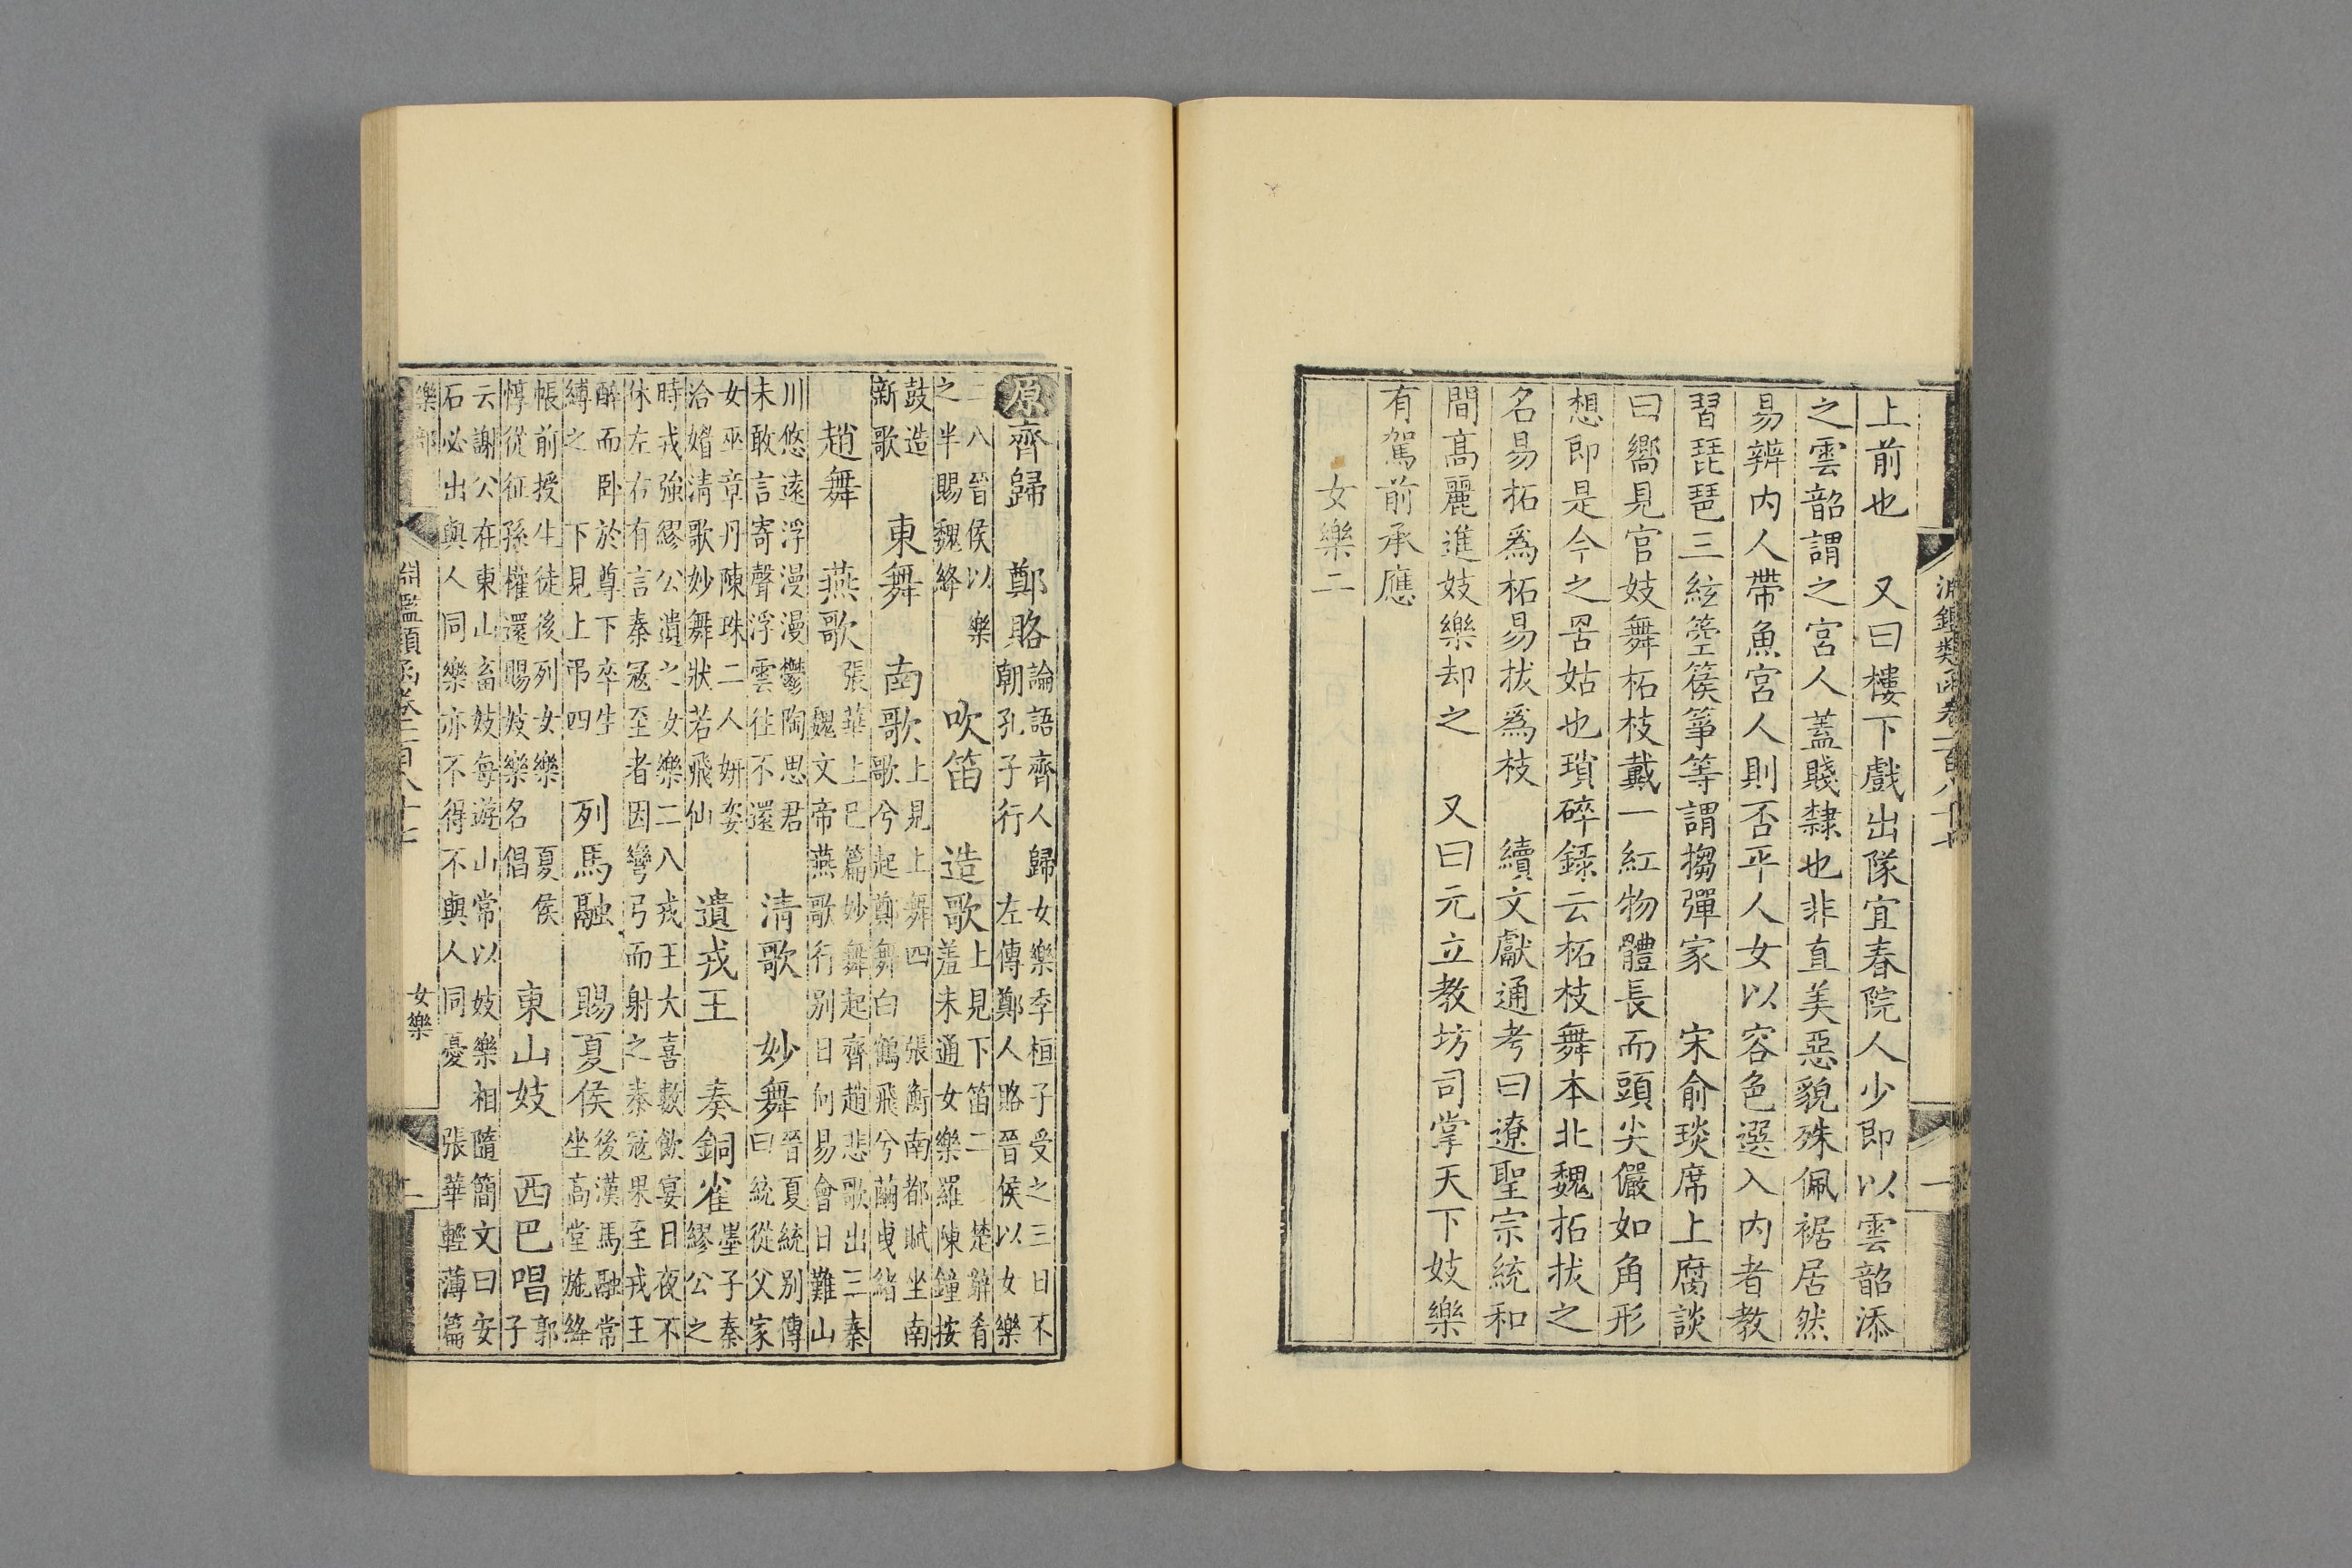 淵鑑類函卷一百八十七
一
上前也　又曰樓下戲出隊宜春院人少即以雲韶添
之雲韶謂之宮人蓋賤隸也非直美惡貌殊佩裾居然
易辨內人帶魚宮人則否平人女以容色選入內者教
習琵琶三絃箜篌箏等謂搊彈家　宋俞琰席上腐談
曰嚮見官妓舞柘枝戴一紅物體長而頭尖儼如角形
想即是今之罟姑也瑣碎錄云柘枝舞本北魏拓拔之
名易拓爲柘易拔爲枝　續文獻通考曰遼聖宗統和
間高麗進妓樂却之　又曰元立教坊司掌天下妓樂
有駕前承應
女樂二
原齊歸　鄭賂論語齊人歸女樂季桓子受之三日不
朝孔子行　左傳鄭人賂晉侯以女樂
二八晉侯以樂
之半賜魏絳　吹笛　造歌上見下笛二　楚辭肴
羞未通女樂羅陳鐘按
鼓造
新歌　東舞　南歌上見上舞四　張衡南都賦坐南
歌兮起鄭舞白鶴飛兮繭曳緒
趙舞　燕歌張華上巳篇妙舞起齊趙悲歌出三秦
魏文帝燕歌行別日何易會日難山
川悠遠浮漫漫鬱陶思君
未敢言寄聲浮雲往不還　清歌　妙舞晉夏統別傳
曰統從父家
女巫章丹陳珠二人妍姿
洽媚清歌妙舞狀若飛仙　遺戎王　奏銅雀墨子秦
繆公之
時戎強繆公遺之女樂二八戎王大喜數飲宴日夜不
休左右有言秦寇至者因彎弓而射之秦寇果至戎王
醉而卧於尊下卒生
縛之　下見上弔四　列馬融　賜夏侯後漢馬融常
坐高堂施絳
帳前授生徒後列女樂　夏侯
惇從征孫權還賜妓樂名倡　東山妓　西巴唱郭
子
云謝公在東山畜妓每遊山常以妓樂相隨簡文曰安
石必出與人同樂亦不得不與人同憂　張華輕薄篇
樂部
淵鑑類函卷一百八十七
女樂
二